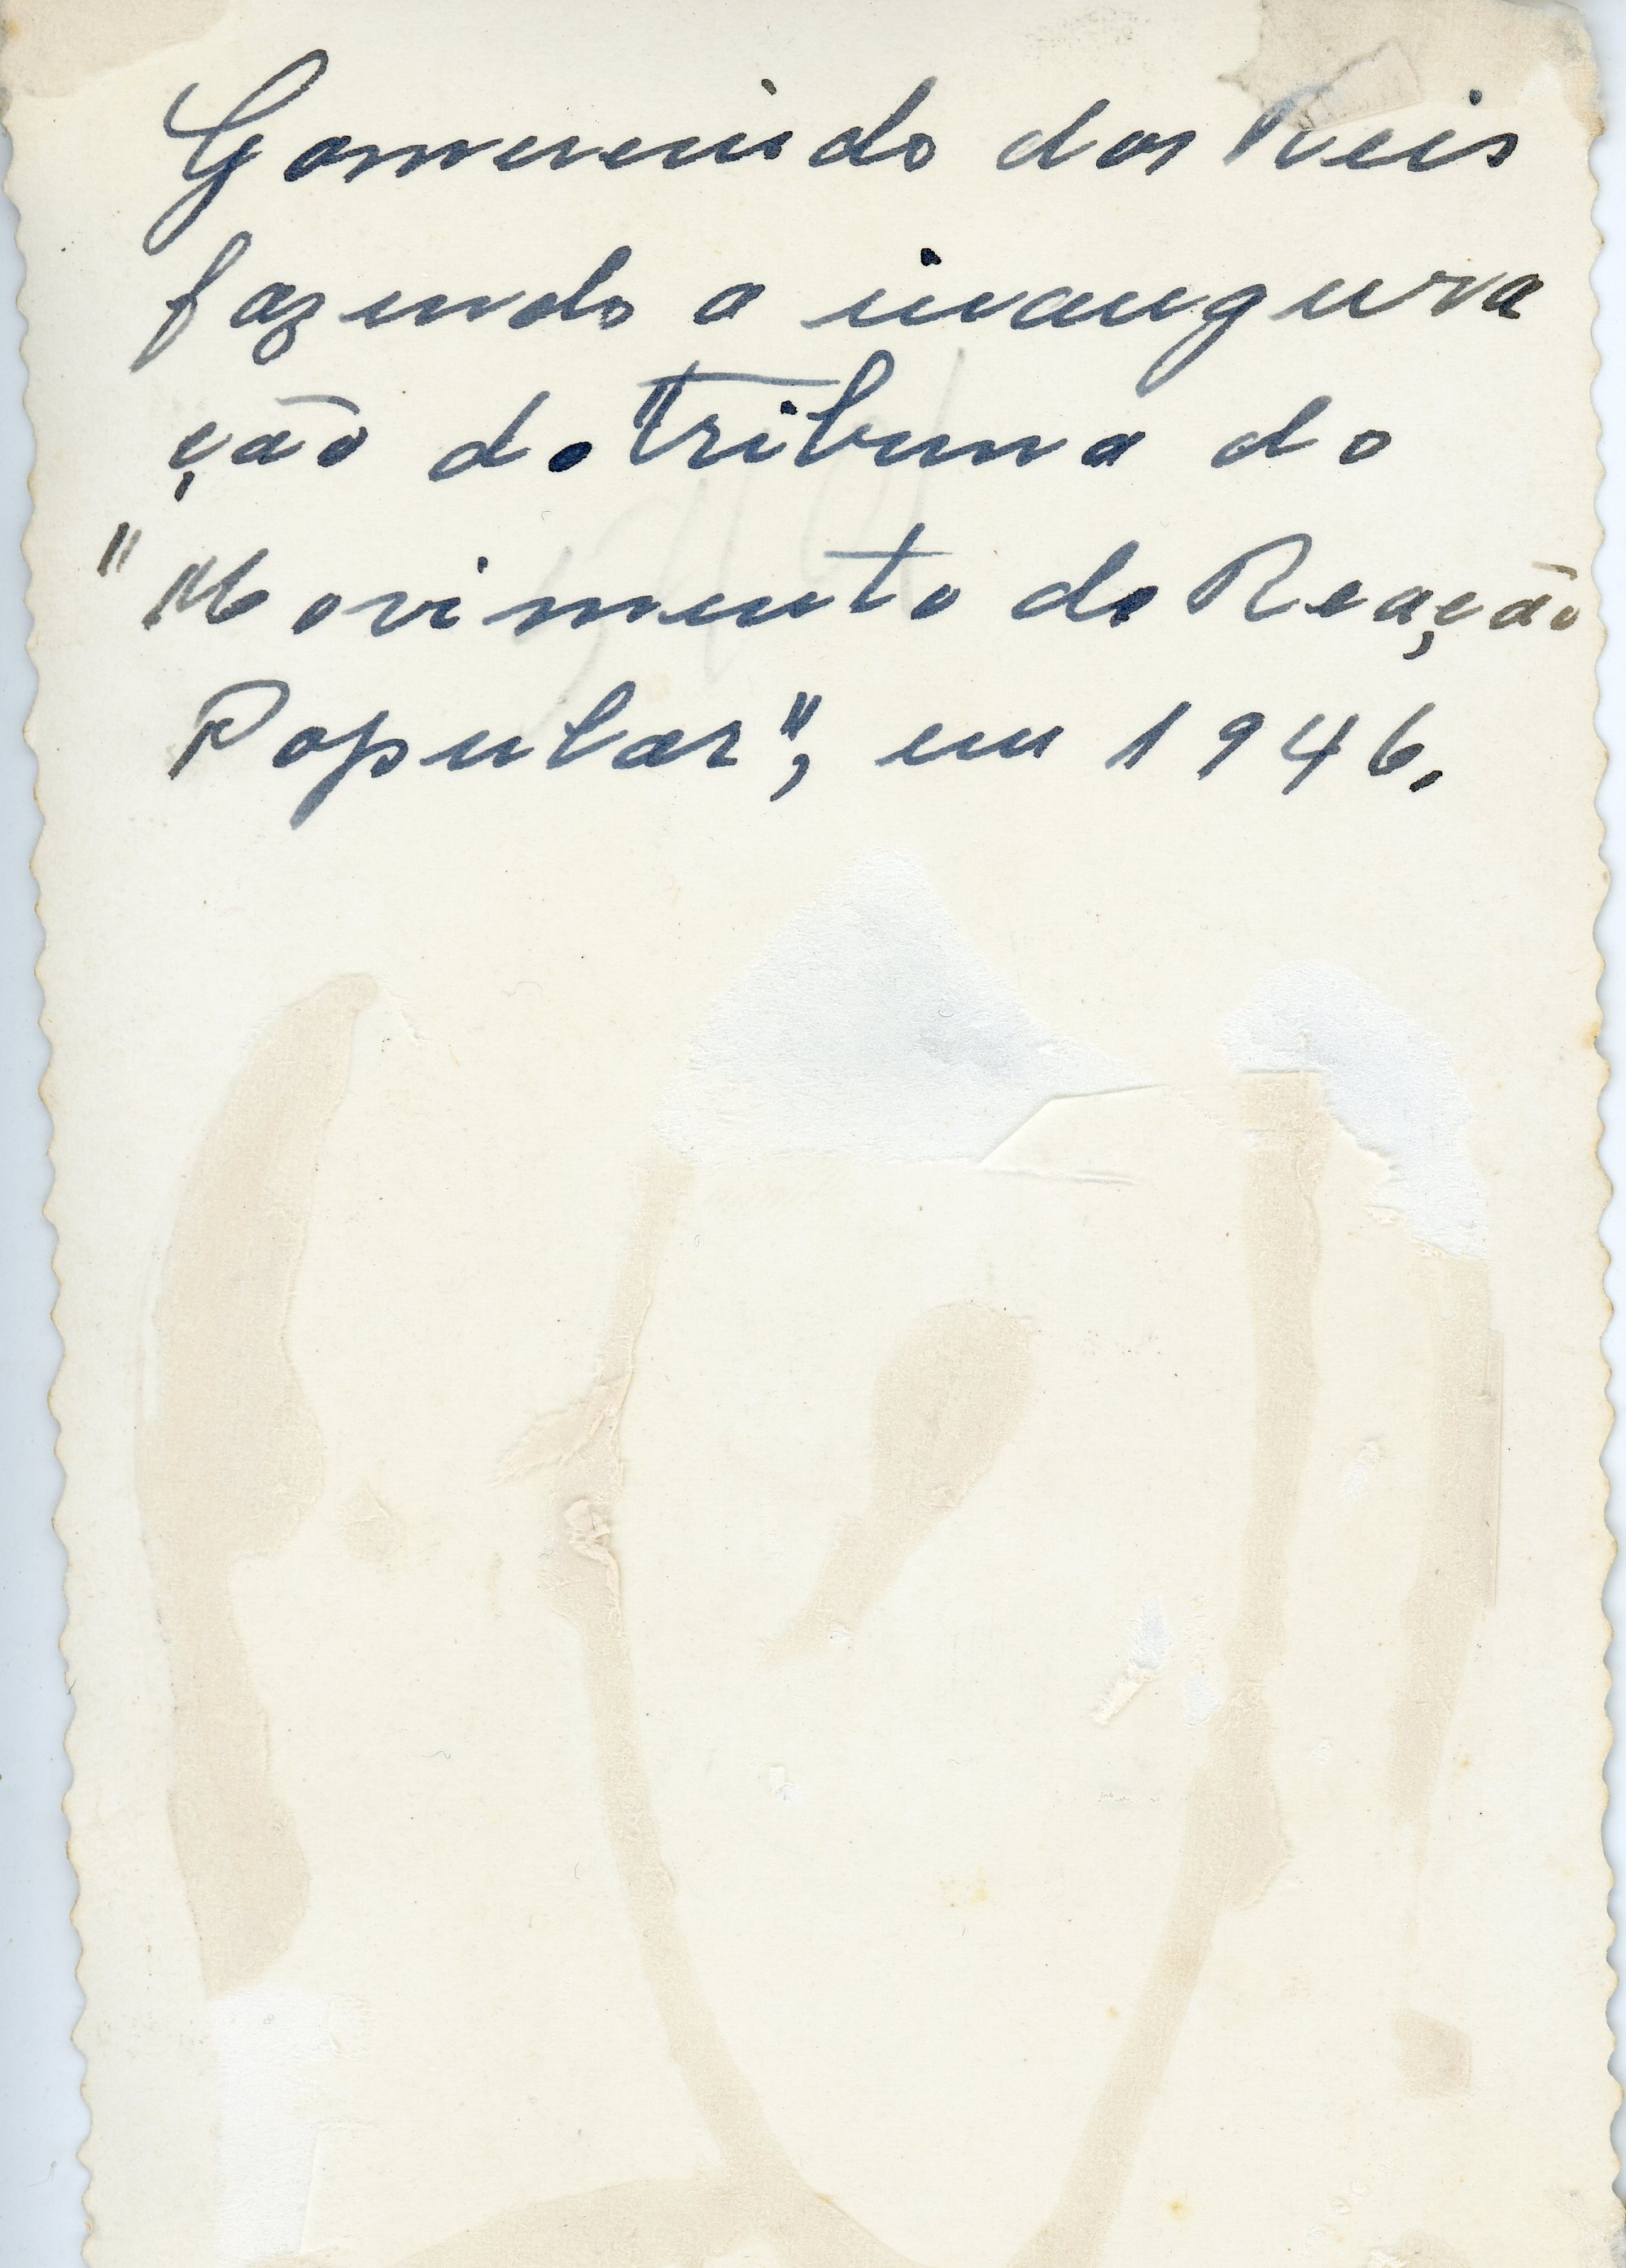 Gomercindo dos Reis
fazendo a inaugura
ção do Tribuna do
"Movimento do Reação
Popular", em 1946.